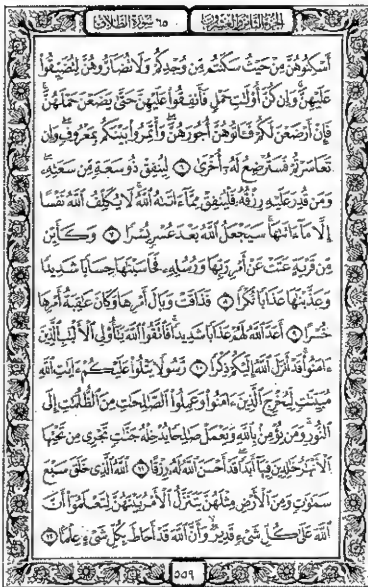 الجزء الثامن والعشرون
٦٥ سورة الطلاق
أَسْكِنُوهُنَّ مِنْ حَيْثُ سَكَنتُم مِّن وُجْدِكُمْ وَلَا تُضَارُّوهُنَّ لِتُضَيِّقُوا۟
عَلَيْهِنَّ وَإِن كُنَّ أُو۟لَٰتِ حَمْلٍ فَأَنفِقُوا۟ عَلَيْهِنَّ حَتَّىٰ يَضَعْنَ حَمْلَهُنَّ
فَإِنْ أَرْضَعْنَ لَكُمْ فَـَٔاتُوهُنَّ أُجُورَهُنَّ وَأْتَمِرُوا۟ بَيْنَكُم بِمَعْرُوفٍ وَإِن
تَعَاسَرْتُمْ فَسَتُرْضِعُ لَهُۥٓ أُخْرَىٰ ٦ لِيُنفِقْ ذُو سَعَةٍ مِّن سَعَتِهِۦ
وَمَن قُدِرَ عَلَيْهِ رِزْقُهُۥ فَلْيُنفِقْ مِمَّآ ءَاتَىٰهُ ٱللَّهُ لَا يُكَلِّفُ ٱللَّهُ نَفْسًا
إِلَّا مَآ ءَاتَىٰهَا سَيَجْعَلُ ٱللَّهُ بَعْدَ عُسْرٍ يُسْرًا ٧ وَكَأَيِّن
مِّن قَرْيَةٍ عَتَتْ عَنْ أَمْرِ رَبِّهَا وَرُسُلِهِۦ فَحَاسَبْنَٰهَا حِسَابًا شَدِيدًا
وَعَذَّبْنَٰهَا عَذَابًا نُّكْرًا ٨ فَذَاقَتْ وَبَالَ أَمْرِهَا وَكَانَ عَٰقِبَةُ أَمْرِهَا
خُسْرًا ٩ أَعَدَّ ٱللَّهُ لَهُمْ عَذَابًا شَدِيدًا فَٱتَّقُوا۟ ٱللَّهَ يَٰٓأُو۟لِى ٱلْأَلْبَٰبِ ٱلَّذِينَ
ءَامَنُوا۟ قَدْ أَنزَلَ ٱللَّهُ إِلَيْكُمْ ذِكْرًا ١٠ رَّسُولًا يَتْلُوا۟ عَلَيْكُمْ ءَايَٰتِ ٱللَّهِ
مُبَيِّنَٰتٍ لِّيُخْرِجَ ٱلَّذِينَ ءَامَنُوا۟ وَعَمِلُوا۟ ٱلصَّٰلِحَٰتِ مِنَ ٱلظُّلُمَٰتِ إِلَى
ٱلنُّورِ وَمَن يُؤْمِنۢ بِٱللَّهِ وَيَعْمَلْ صَٰلِحًا يُدْخِلْهُ جَنَّٰتٍ تَجْرِى مِن تَحْتِهَا
ٱلْأَنْهَٰرُ خَٰلِدِينَ فِيهَآ أَبَدًا قَدْ أَحْسَنَ ٱللَّهُ لَهُۥ رِزْقًا ١١ ٱللَّهُ ٱلَّذِى خَلَقَ سَبْعَ
سَمَٰوَٰتٍ وَمِنَ ٱلْأَرْضِ مِثْلَهُنَّ يَتَنَزَّلُ ٱلْأَمْرُ بَيْنَهُنَّ لِتَعْلَمُوٓا۟ أَنَّ
ٱللَّهَ عَلَىٰ كُلِّ شَىْءٍ قَدِيرٌ وَأَنَّ ٱللَّهَ قَدْ أَحَاطَ بِكُلِّ شَىْءٍ عِلْمًۢا ١٢
٥٥٩